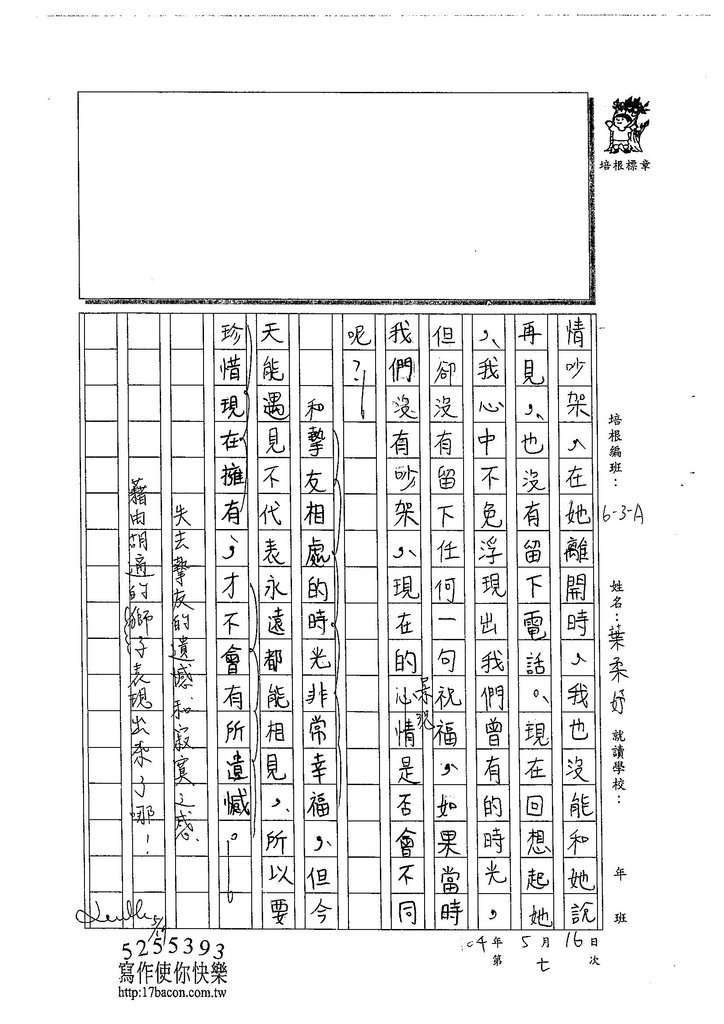 培根標章
培根編班：6-3-A 姓名：葉柔妤 就讀學校： 年 班
104年5月16日
第七次
情吵架，在她離開時，我也沒能和她說
再見，也沒有留下電話。現在回想起她
，我心中不免浮現出我們曾有的時光，
但卻沒有留下任何一句祝福，如果當時
我們沒有吵架，現在的心情是否會不同
呢？
和摯友相處的時光非常幸福，但今
天能遇見不代表永遠都能相見，所以要
珍惜現在擁有，才不會有所遺憾。
失去摯友的遺憾和寂寞之感，
藉由胡適的獅子表現出來了哪！
5/19
5255393
寫作使你快樂
http:17bacon.com.tw